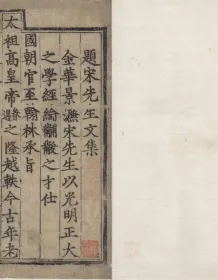 題宋先生文集
金華景濂宋先生以光明正大
之學經綸黼黻之才仕
國朝官至翰林承旨
太祖高皇帝眷遇之隆越軼今古年老